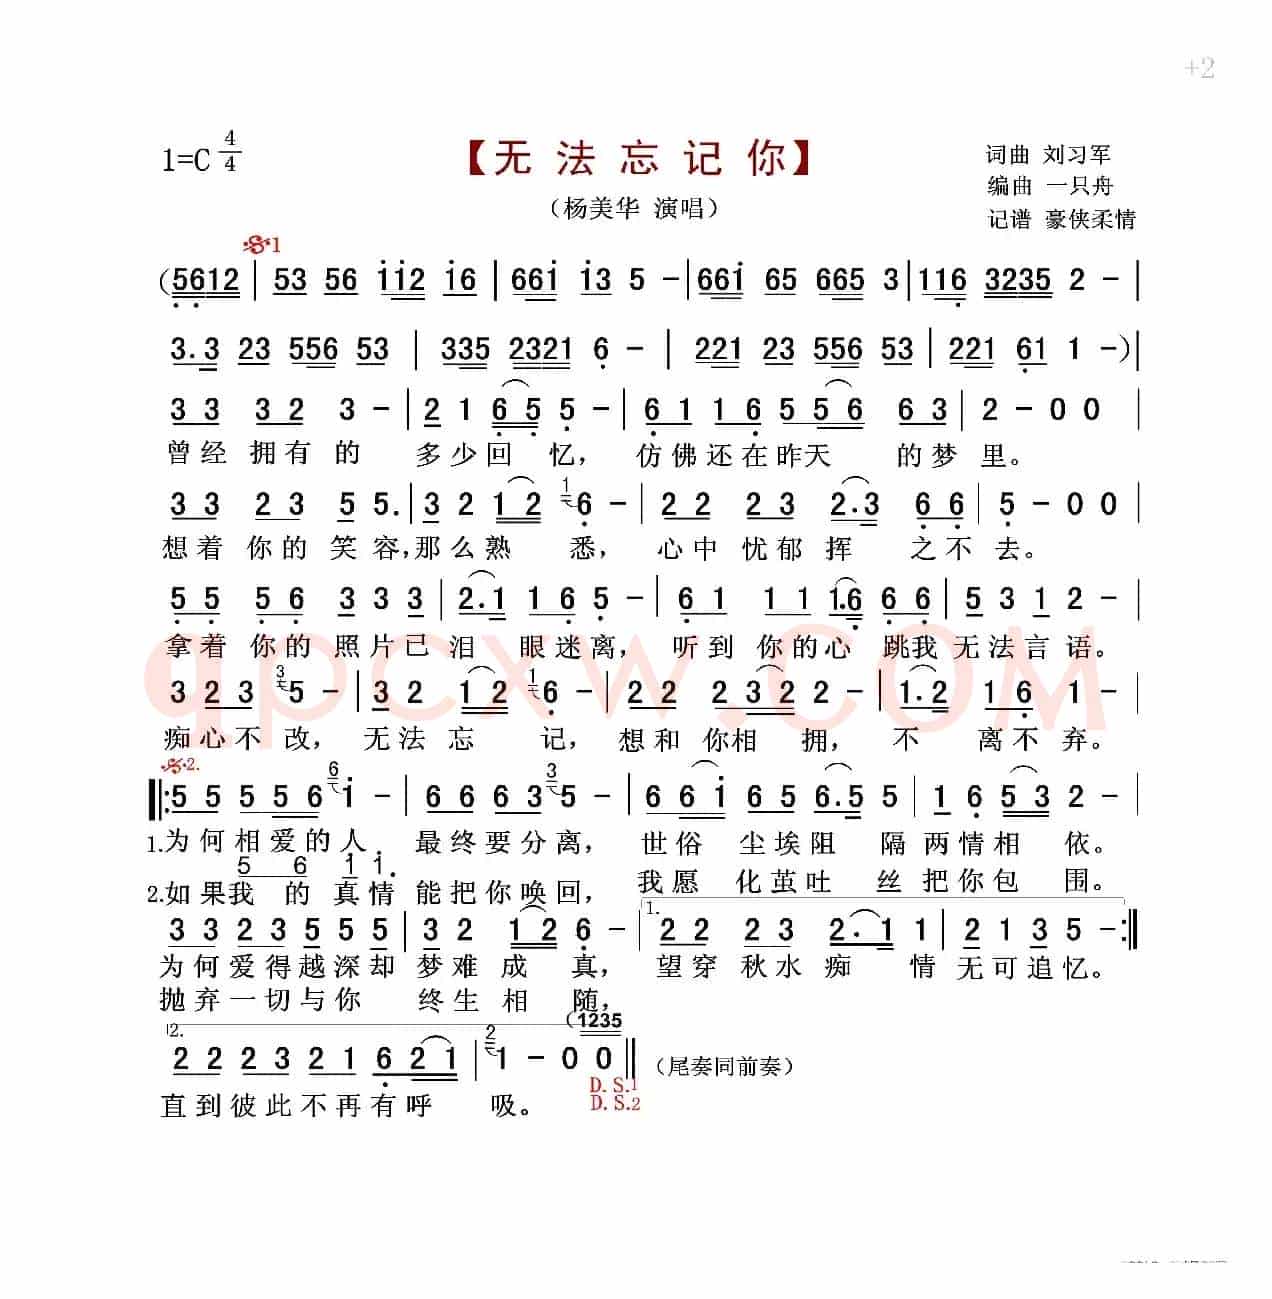 +2
1=C 4/4
【无法忘记你】
(杨美华 演唱)
词曲 刘习军
编曲 一只舟
记谱 豪侠柔情
𝄋1
(5612 | 53 56 112 16 | 661 13 5 - | 661 65 665 3 | 116 3235 2 - |
3.3 23 556 53 | 335 2321 6 - | 221 23 556 53 | 221 61 1 -) |
3 3 3 2 3 - | 2 1 6 5 5 - | 6 1 1 6 5 5 6 6 3 | 2 - 0 0 |
曾经拥有的 多少回忆, 仿佛还在昨天 的梦里。
1
3 3 2 3 5 5. | 3 2 1 2 6 - | 2 2 2 3 2.3 6 6 | 5 - 0 0 |
想着你的笑容,那么熟悉, 心中忧郁挥之不去。
5 5 5 6 3 3 3 | 2.1 1 6 5 - | 6 1 1 1 1.6 6 6 | 5 3 1 2 - |
拿着你的照片已泪眼迷离, 听到你的心跳我无法言语。
3 1
3 2 3 5 - | 3 2 1 2 6 - | 2 2 2 3 2 2 | 1.2 1 6 1 - |
痴心不改, 无法忘记, 想和你相拥, 不离不弃。
𝄋2.
6 3
|: 5 5 5 5 6 1 - | 6 6 6 3 5 - | 6 6 1 6 5 6.5 5 | 1 6 5 3 2 - |
1.为何相爱的人, 最终要分离, 世俗尘埃阻隔两情相依。
5 6 1 1.
2.如果我的真情能把你唤回, 我愿化茧吐丝把你包围。
1.
3 3 2 3 5 5 5 | 3 2 1 2 6 - | 2 2 2 3 2.1 1 | 2 1 3 5 - :|
为何爱得越深却梦难成真, 望穿秋水痴情无可追忆。
抛弃一切与你终生相随,
2. 2 (1235
2 2 2 3 2 1 6 2 1 | 1 - 0 0 || (尾奏同前奏)
D.S.1
D.S.2
直到彼此不再有呼吸。
qpcxw.COM